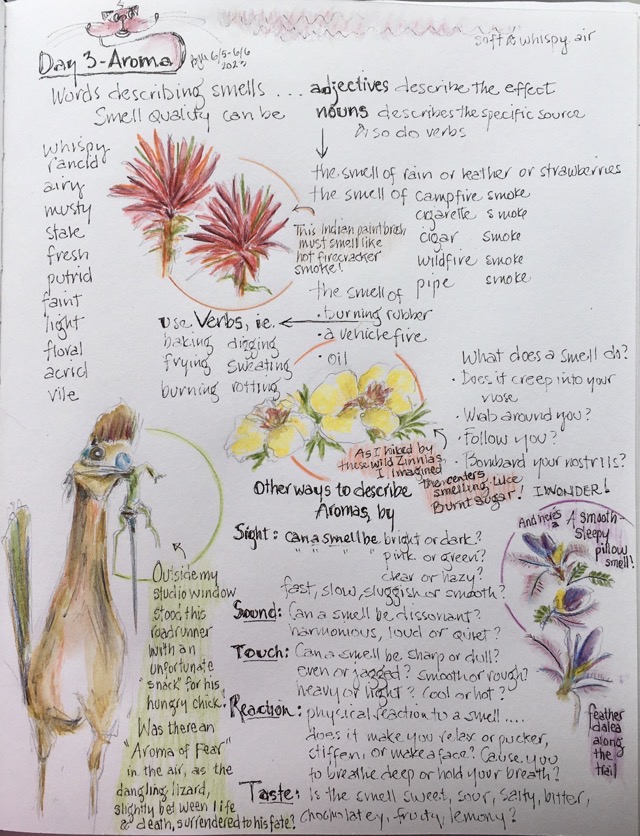 Day 3 - Aroma
6/5-6/6
2023
soft & whispy air
Words describing smells ... adjectives describe the effect
Smell quality can be nouns describes the specific source
so do verbs
whispy
rancid
airy
musty
stale
fresh
putrid
faint
light
floral
acrid
vile
the smell of rain or leather or strawberries
the smell of campfire smoke
cigarette smoke
cigar smoke
wildfire smoke
pipe smoke
This Indian paintbrush
must smell like
hot firecracker
smoke!
the smell of
• burning rubber
• a vehicle fire
• oil
use Verbs, ie.
baking digging
frying sweating
burning rotting
What does a smell do?
• Does it creep into your
nose
• Wrab around you?
• Follow you?
• Bombard your nostrils?
I WONDER!
As I hiked by
these wild Zinnias
I imagined
the centers
smelling like
Burnt Sugar!
Other ways to describe
Aromas, by
Sight: can a smell be bright or dark?
" " " " pink or green?
clear or hazy?
fast, slow, sluggish or smooth?
Sound: Can a smell be dissonant?
harmonious, loud or quiet?
Touch: Can a smell be sharp or dull?
even or jagged? smooth or rough?
heavy or light? Cool or hot?
Reaction: physical reaction to a smell ....
does it make you relax or pucker,
stiffen, or make a face? Cause you
to breathe deep or hold your breath?
Taste: Is the smell sweet, sour, salty, bitter,
chocolatey, fruity, lemony?
And here's a A smooth-
sleepy
pillow
smell!
feather
dalea
along
the
trail
Outside my
studio window
stood this
roadrunner
with an
unfortunate
"snack" for his
hungry chick!
Was there an
"Aroma of Fear"
in the air, as the
dangling lizard,
slightly between life
& death, surrendered to his fate?